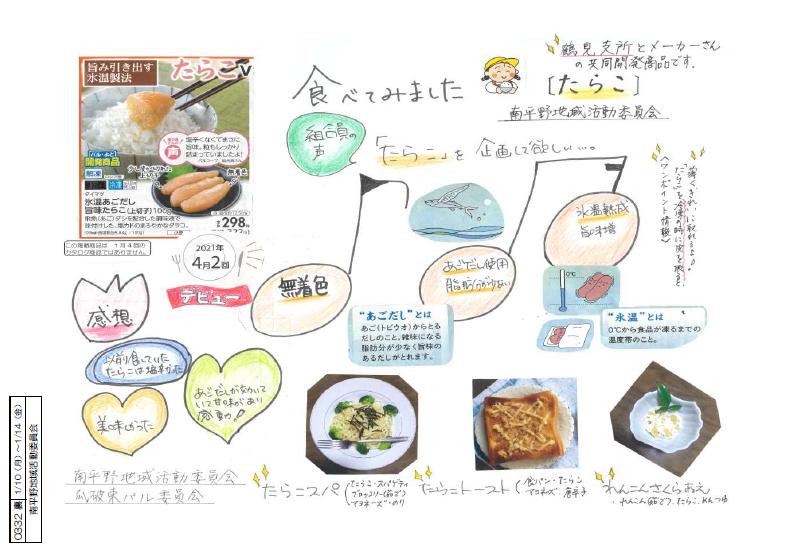 鶴見支所とメーカーさん
の共同開発商品です。
食べてみました
[たらこ]
南平野地域活動委員会
旨み引き出す
氷温製法
たらこ
声
塩辛くなくてまさに
旨味。粒もしっかり
詰まっていましたよ!
開発商品
解凍
冷凍
無着色
ダイマツ
氷温あごだし
旨味たらこ(上切子)100g
298円
この掲載商品は 1月4回の
カタログ商品ではありません。
2021年
4月2回
デビュー
組合員の
声
「たらこ」を企画して欲しい…。
無着色
あごだし使用
脂肪分が少ない
氷温熟成
旨味増
〈ワンポイント情報〉
“あごだし”とは
あご(トビウオ)からとる
だしのこと。雑味になる
脂肪分が少なく旨味の
あるだしがとれます。
0℃
“氷温”とは
0℃から食品が凍るまでの
温度帯のこと。
感想
以前食していた
たらこは塩辛かった
美味しかった
あごだしが効いて
いて甘味があり
感動!
南平野地域活動委員会
瓜破東パル委員会
たらこスパ
(たらこ・スパゲティ
ブロッコリー(茹で)
マヨネーズ・のり
たらこトースト
(食パン・たらこ
マヨネーズ・
れんこんさくらあえ
・れんこん(茹で)、たらこ、めんつゆ
0332 裏 1/10(月)~1/14(金)
南平野地域活動委員会